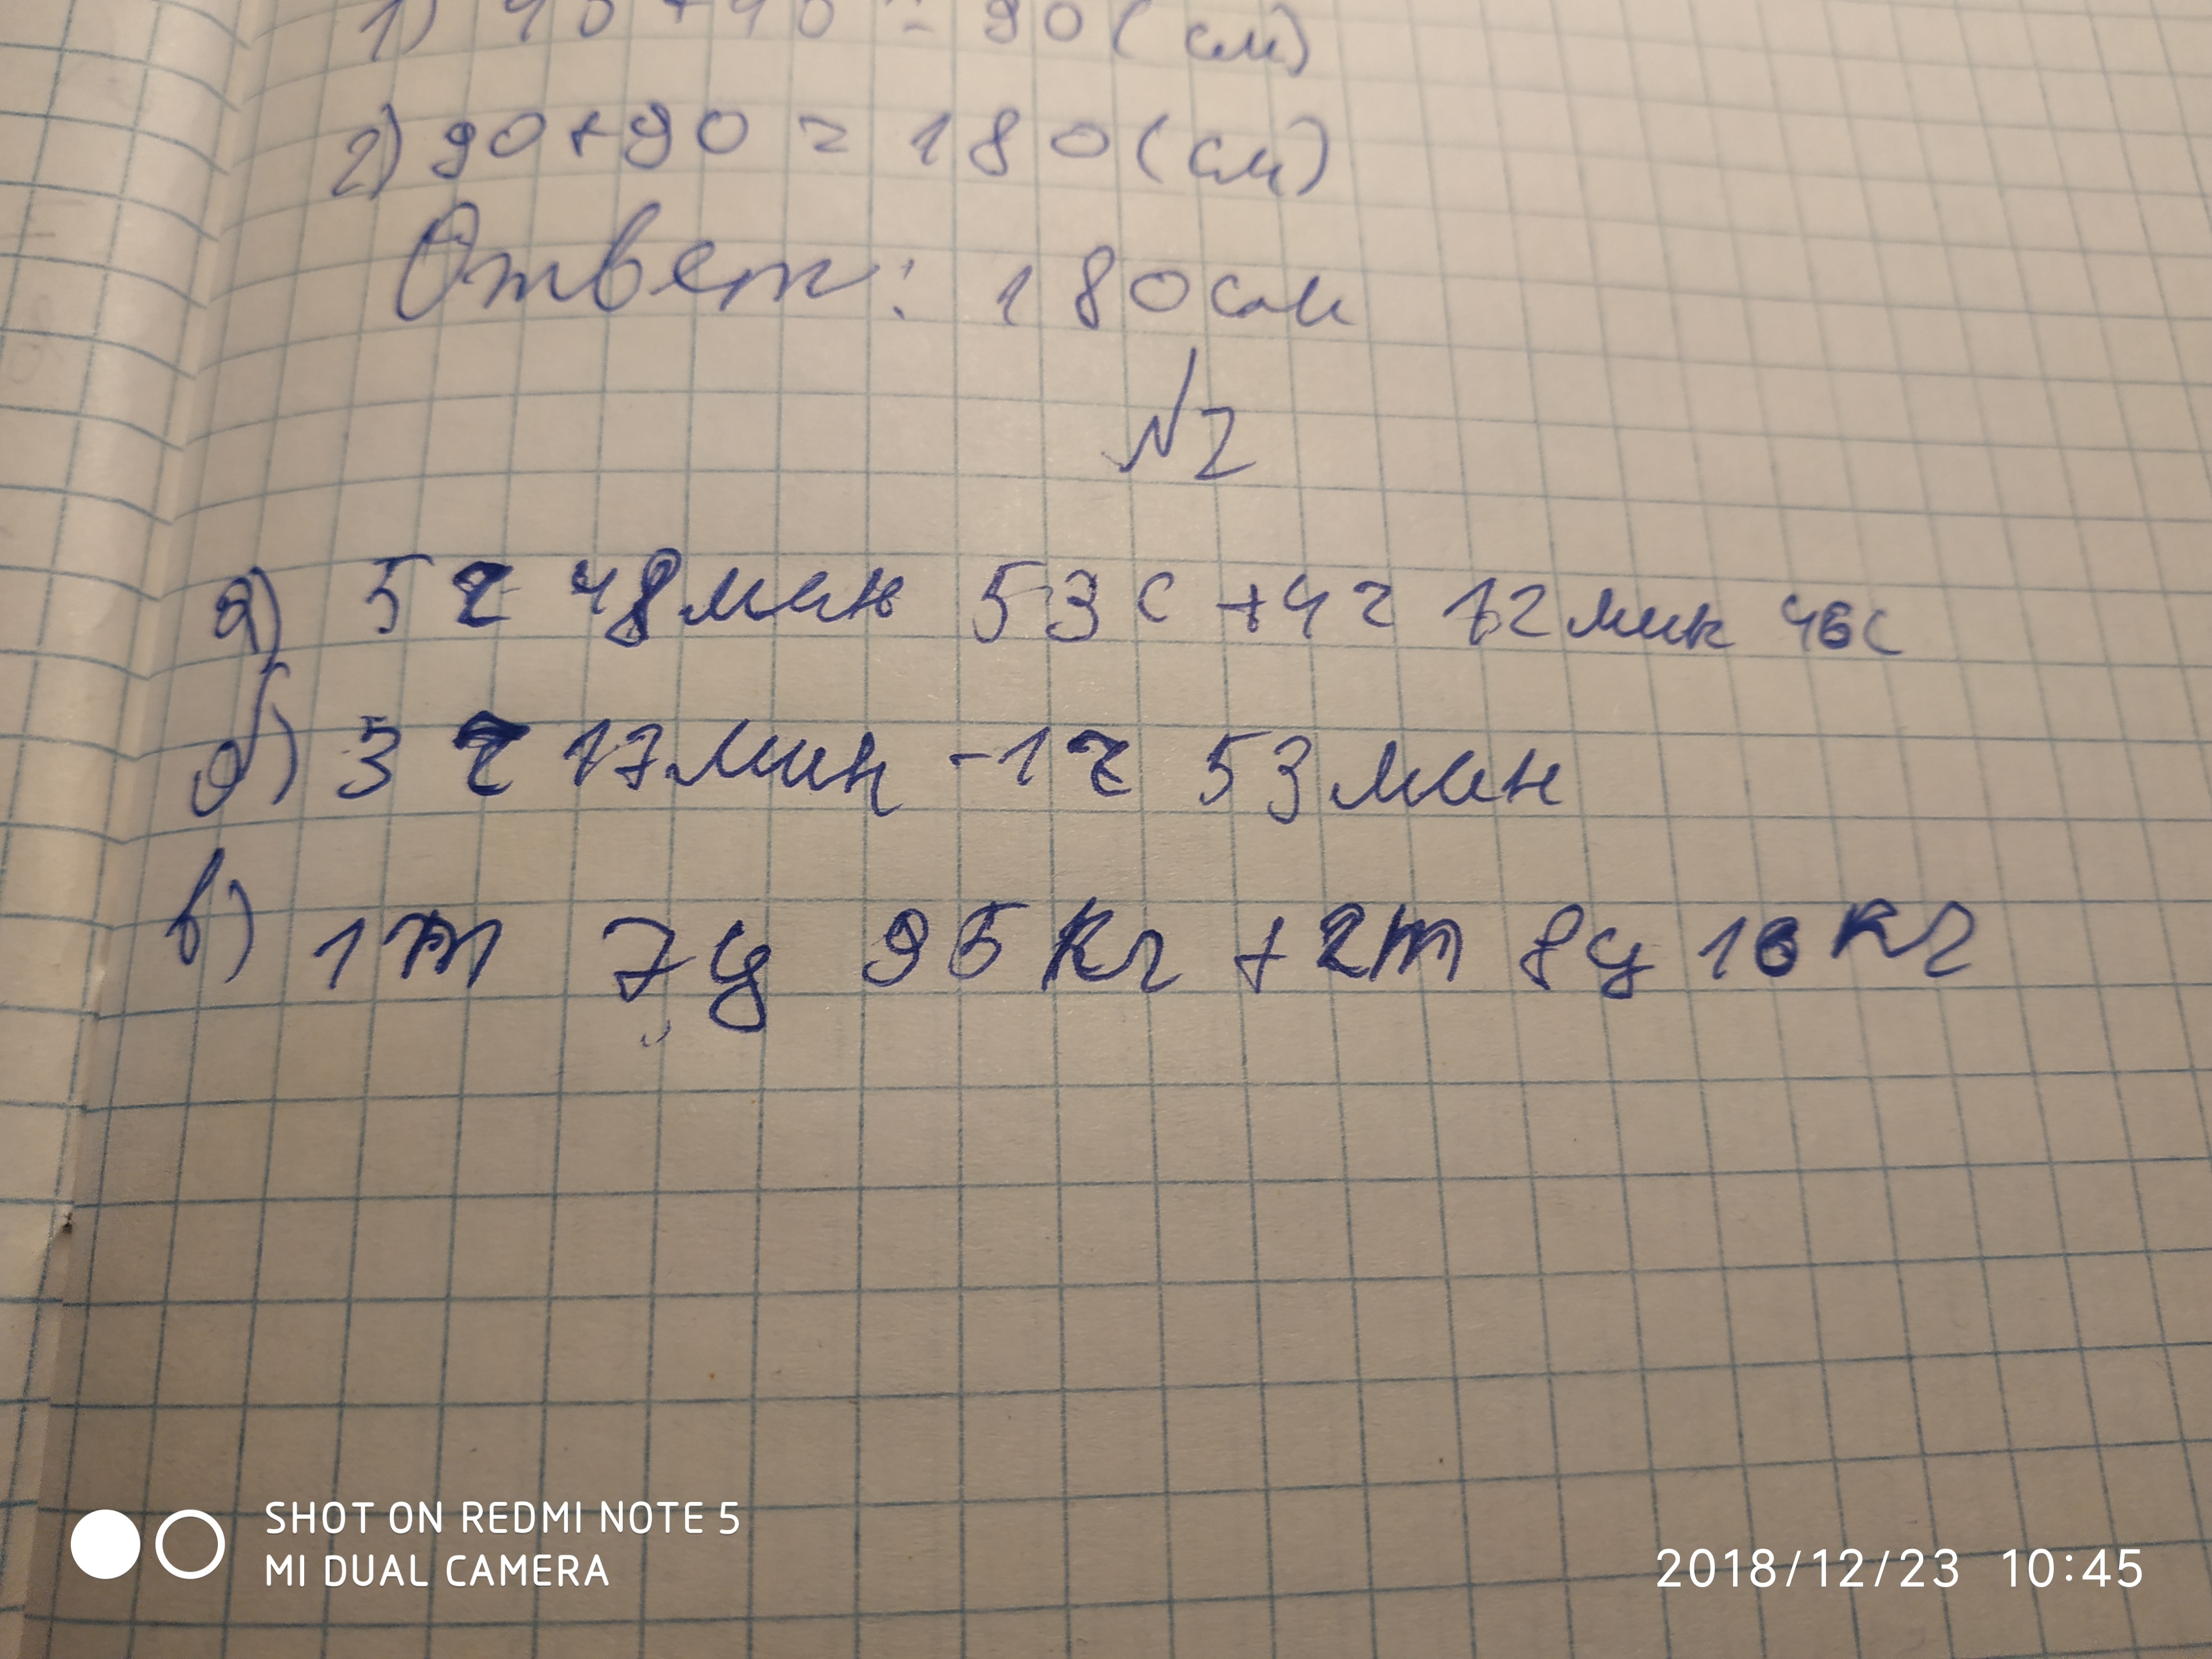 1) 45 + 45 = 90 (см)
2) 90 + 90 = 180 (см)
Ответ: 180 см
№2
а) 5 ч 48 мин 53 с + 4 ч 12 мин 46 с
б) 3 ч 17 мин - 1 ч 53 мин
в) 1 т 7 ц 95 кг + 2 т 8 ц 16 кг
SHOT ON REDMI NOTE 5
MI DUAL CAMERA
2018/12/23 10:45